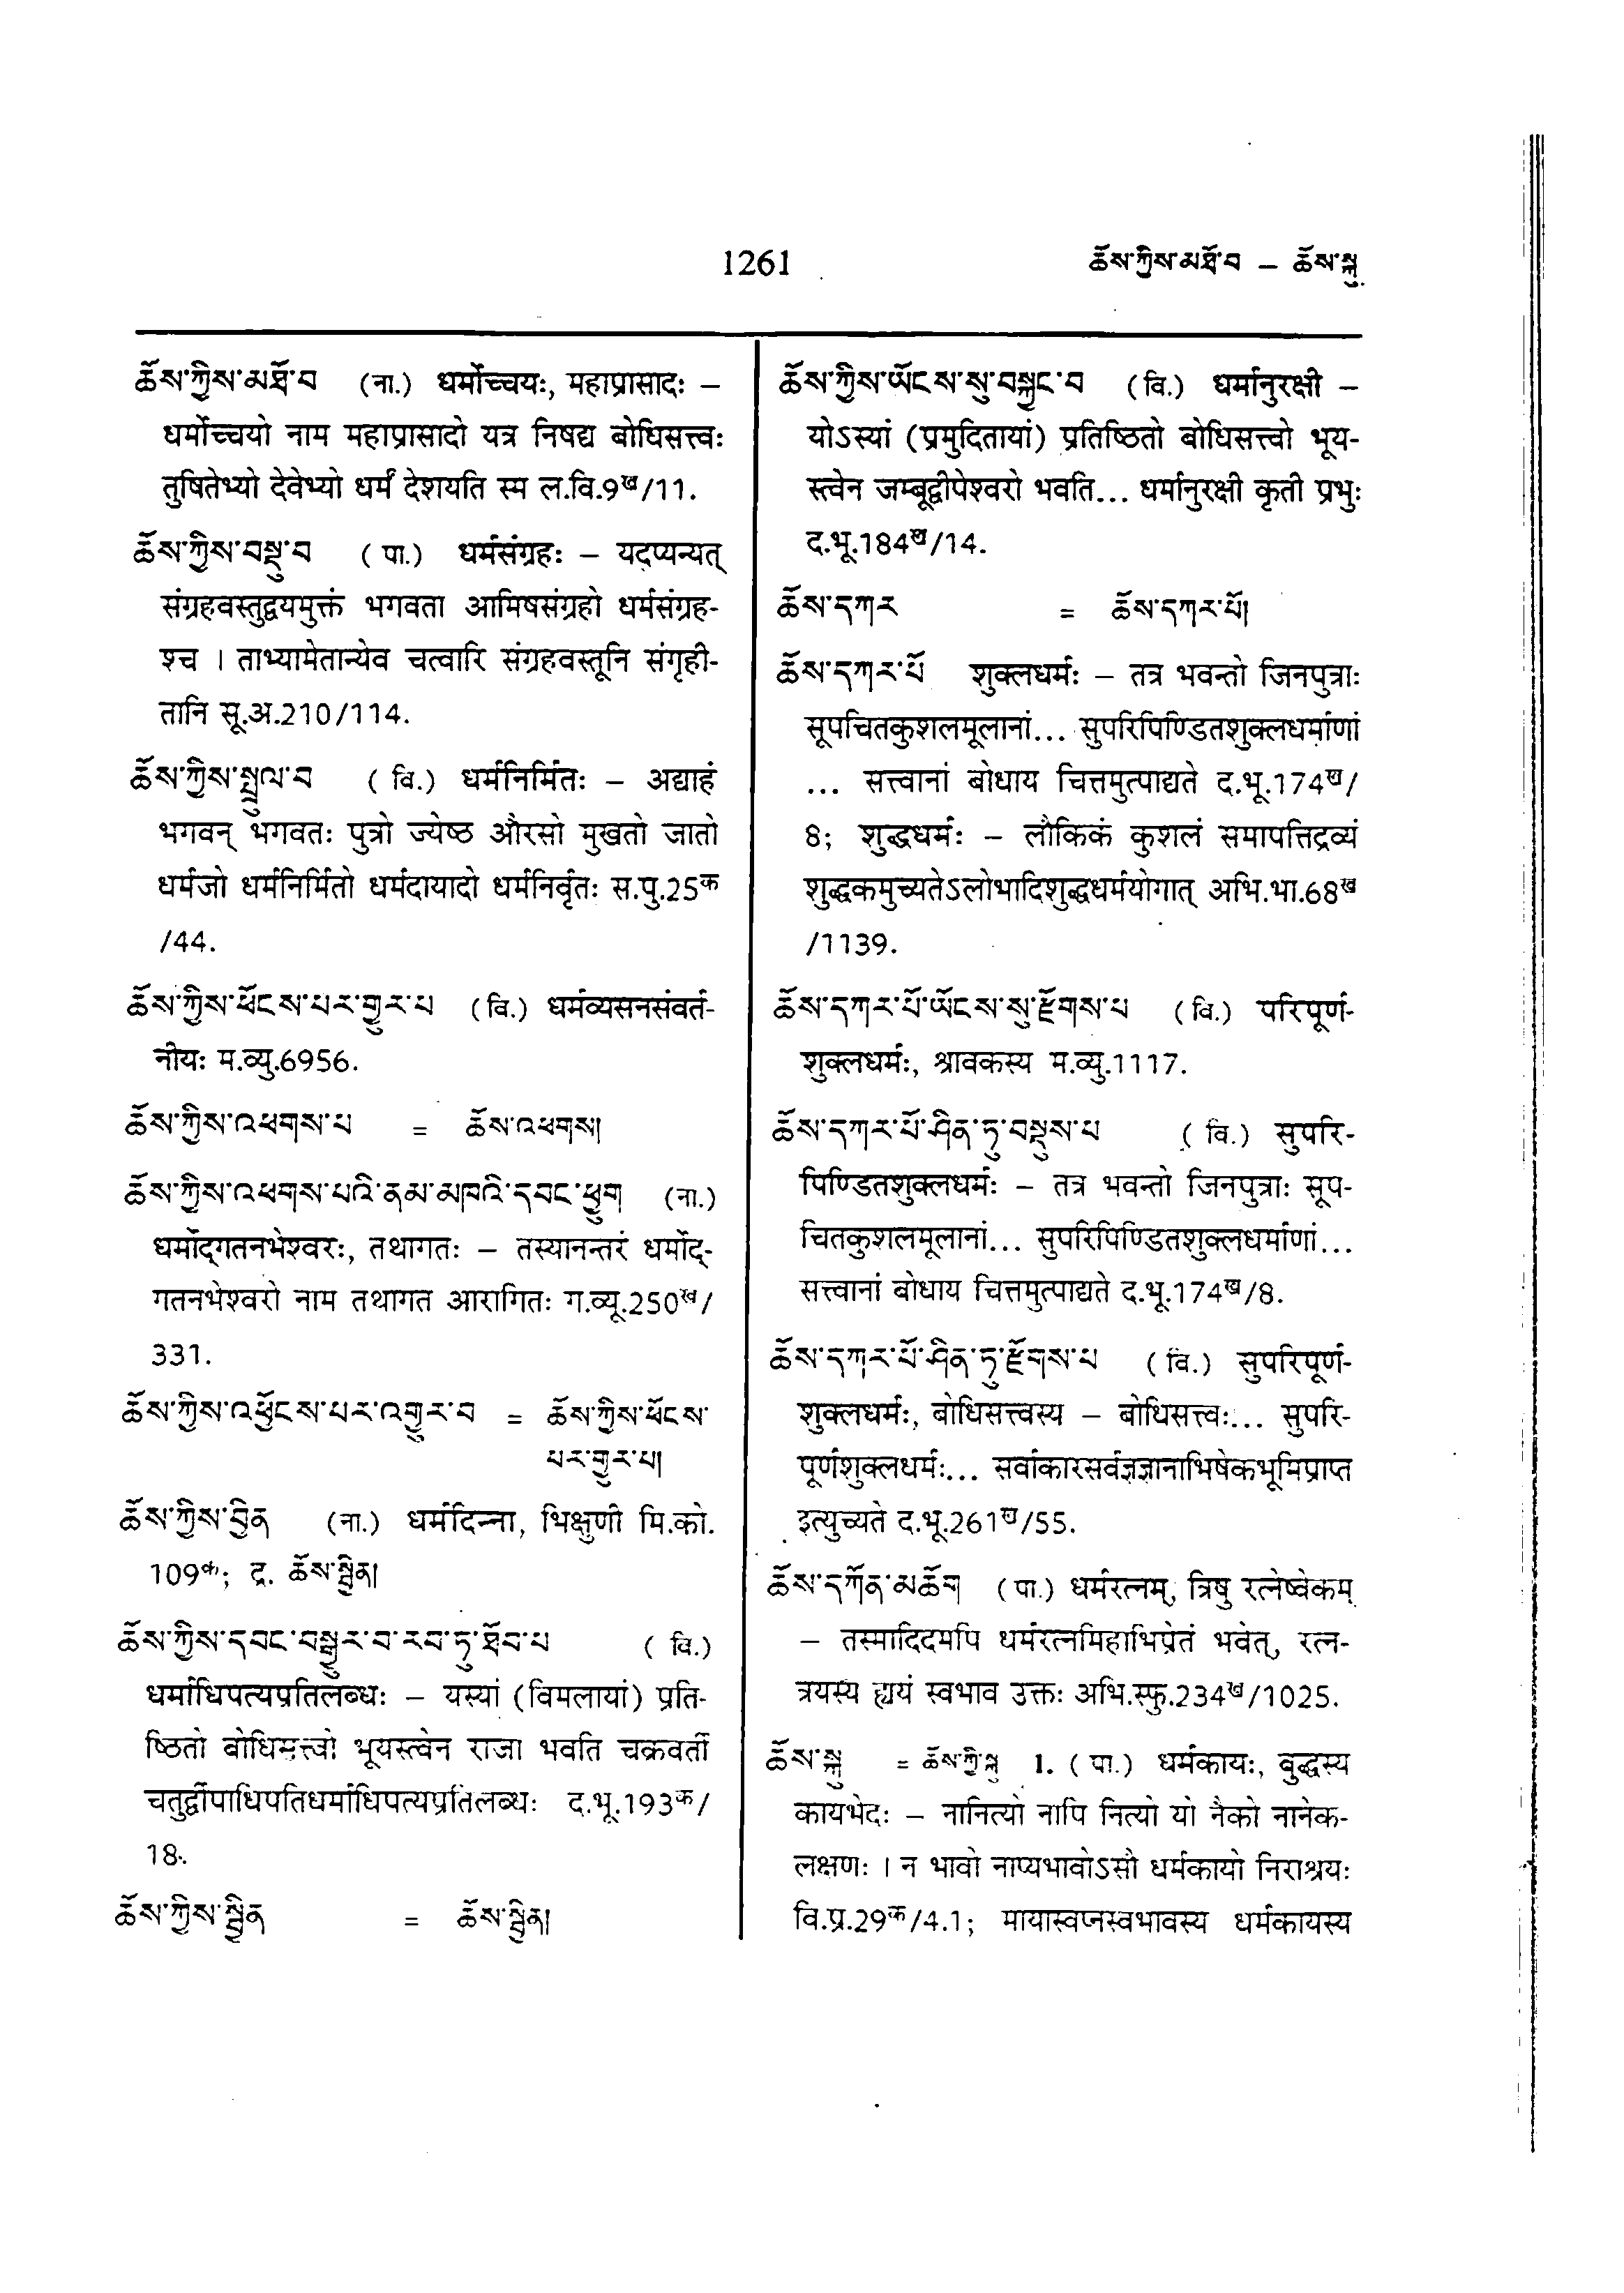 1261
ཆོས་ཀྱིས་མཐོ་བ – ཆོས་སྐུ
ཆོས་ཀྱིས་མཐོ་བ (ना.) धर्मोच्चयः, महाप्रासादः –
धर्मोच्चयो नाम महाप्रासादो यत्र निषद्य बोधिसत्त्वः
तुषितेभ्यो देवेभ्यो धर्मं देशयति स्म ल.वि.9ख/11.
ཆོས་ཀྱིས་བསྡུ་བ (पा.) धर्मसंग्रहः – यदप्यन्यत्
संग्रहवस्तुद्वयमुक्तं भगवता आमिषसंग्रहो धर्मसंग्रह-
श्च । ताभ्यामेतान्येव चत्वारि संग्रहवस्तूनि संगृही-
तानि सू.अ.210/114.
ཆོས་ཀྱིས་སྤྲུལ་བ (वि.) धर्मनिर्मितः – अद्याहं
भगवन् भगवतः पुत्रो ज्येष्ठ औरसो मुखतो जातो
धर्मजो धर्मनिर्मितो धर्मदायादो धर्मनिर्वृतः स.पु.25क
/44.
ཆོས་ཀྱིས་ཕོངས་པར་གྱུར་པ (वि.) धर्मव्यसनसंवर्त-
नीयः म.व्यु.6956.
ཆོས་ཀྱིས་འཕགས་པ = ཆོས་འཕགས།
ཆོས་ཀྱིས་འཕགས་པའི་ནམ་མཁའི་དབང་ཕྱུག (ना.)
धर्मोद्गतनभेश्वरः, तथागतः – तस्यानन्तरं धर्मोद्-
गतनभेश्वरो नाम तथागत आरागितः ग.व्यू.250ख/
331.
ཆོས་ཀྱིས་འཕོངས་པར་འགྱུར་བ = ཆོས་ཀྱིས་ཕོངས་
པར་གྱུར་པ།
ཆོས་ཀྱིས་བྱིན (ना.) धर्मदिन्ना, भिक्षुणी मि.को.
109क; द्र. ཆོས་སྦྱིན།
ཆོས་ཀྱིས་དབང་བསྒྱུར་བ་རབ་ཏུ་ཐོབ་པ (वि.)
धर्माधिपत्यप्रतिलब्धः – यस्यां (विमलायां) प्रति-
ष्ठितो बोधिसत्त्वो भूयस्त्वेन राजा भवति चक्रवर्ती
चतुर्द्वीपाधिपतिधर्माधिपत्यप्रतिलब्धः द.भू.193क/
18.
ཆོས་ཀྱིས་སྦྱིན = ཆོས་སྦྱིན།
ཆོས་ཀྱིས་ཡོངས་སུ་བསྐྱང་བ (वि.) धर्मानुरक्षी –
योऽस्यां (प्रमुदितायां) प्रतिष्ठितो बोधिसत्त्वो भूय-
स्त्वेन जम्बूद्वीपेश्वरो भवति... धर्मानुरक्षी कृती प्रभुः
द.भू.184ख/14.
ཆོས་དཀར = ཆོས་དཀར་པོ།
ཆོས་དཀར་པོ शुक्लधर्मः – तत्र भवन्तो जिनपुत्राः
सूपचितकुशलमूलानां... सुपरिपिण्डितशुक्लधर्माणां
... सत्त्वानां बोधाय चित्तमुत्पाद्यते द.भू.174ख/
8; शुद्धधर्मः – लौकिकं कुशलं समापत्तिद्रव्यं
शुद्धकमुच्यतेऽलोभादिशुद्धधर्मयोगात् अभि.भा.68ख
/1139.
ཆོས་དཀར་པོ་ཡོངས་སུ་རྫོགས་པ (वि.) परिपूर्ण-
शुक्लधर्मः, श्रावकस्य म.व्यु.1117.
ཆོས་དཀར་པོ་ཤིན་ཏུ་བསྡུས་པ (वि.) सुपरि-
पिण्डितशुक्लधर्मः – तत्र भवन्तो जिनपुत्राः सूप-
चितकुशलमूलानां... सुपरिपिण्डितशुक्लधर्माणां...
सत्त्वानां बोधाय चित्तमुत्पाद्यते द.भू.174ख/8.
ཆོས་དཀར་པོ་ཤིན་ཏུ་རྫོགས་པ (वि.) सुपरिपूर्ण-
शुक्लधर्मः, बोधिसत्त्वस्य – बोधिसत्त्वः... सुपरि-
पूर्णशुक्लधर्मः... सर्वाकारसर्वज्ञज्ञानाभिषेकभूमिप्राप्त
इत्युच्यते द.भू.261ख/55.
ཆོས་དཀོན་མཆོག (पा.) धर्मरत्नम्, त्रिषु रत्नेष्वेकम्
– तस्मादिदमपि धर्मरत्नमिहाभिप्रेतं भवेत्, रत्न-
त्रयस्य ह्ययं स्वभाव उक्तः अभि.स्फु.234ख/1025.
ཆོས་སྐུ = ཆོས་ཀྱི་སྐུ 1. (पा.) धर्मकायः, बुद्धस्य
कायभेदः – नानित्यो नापि नित्यो यो नैको नानेक-
लक्षणः । न भावो नाप्यभावोऽसौ धर्मकायो निराश्रयः
वि.प्र.29क/4.1; मायास्वप्नस्वभावस्य धर्मकायस्य